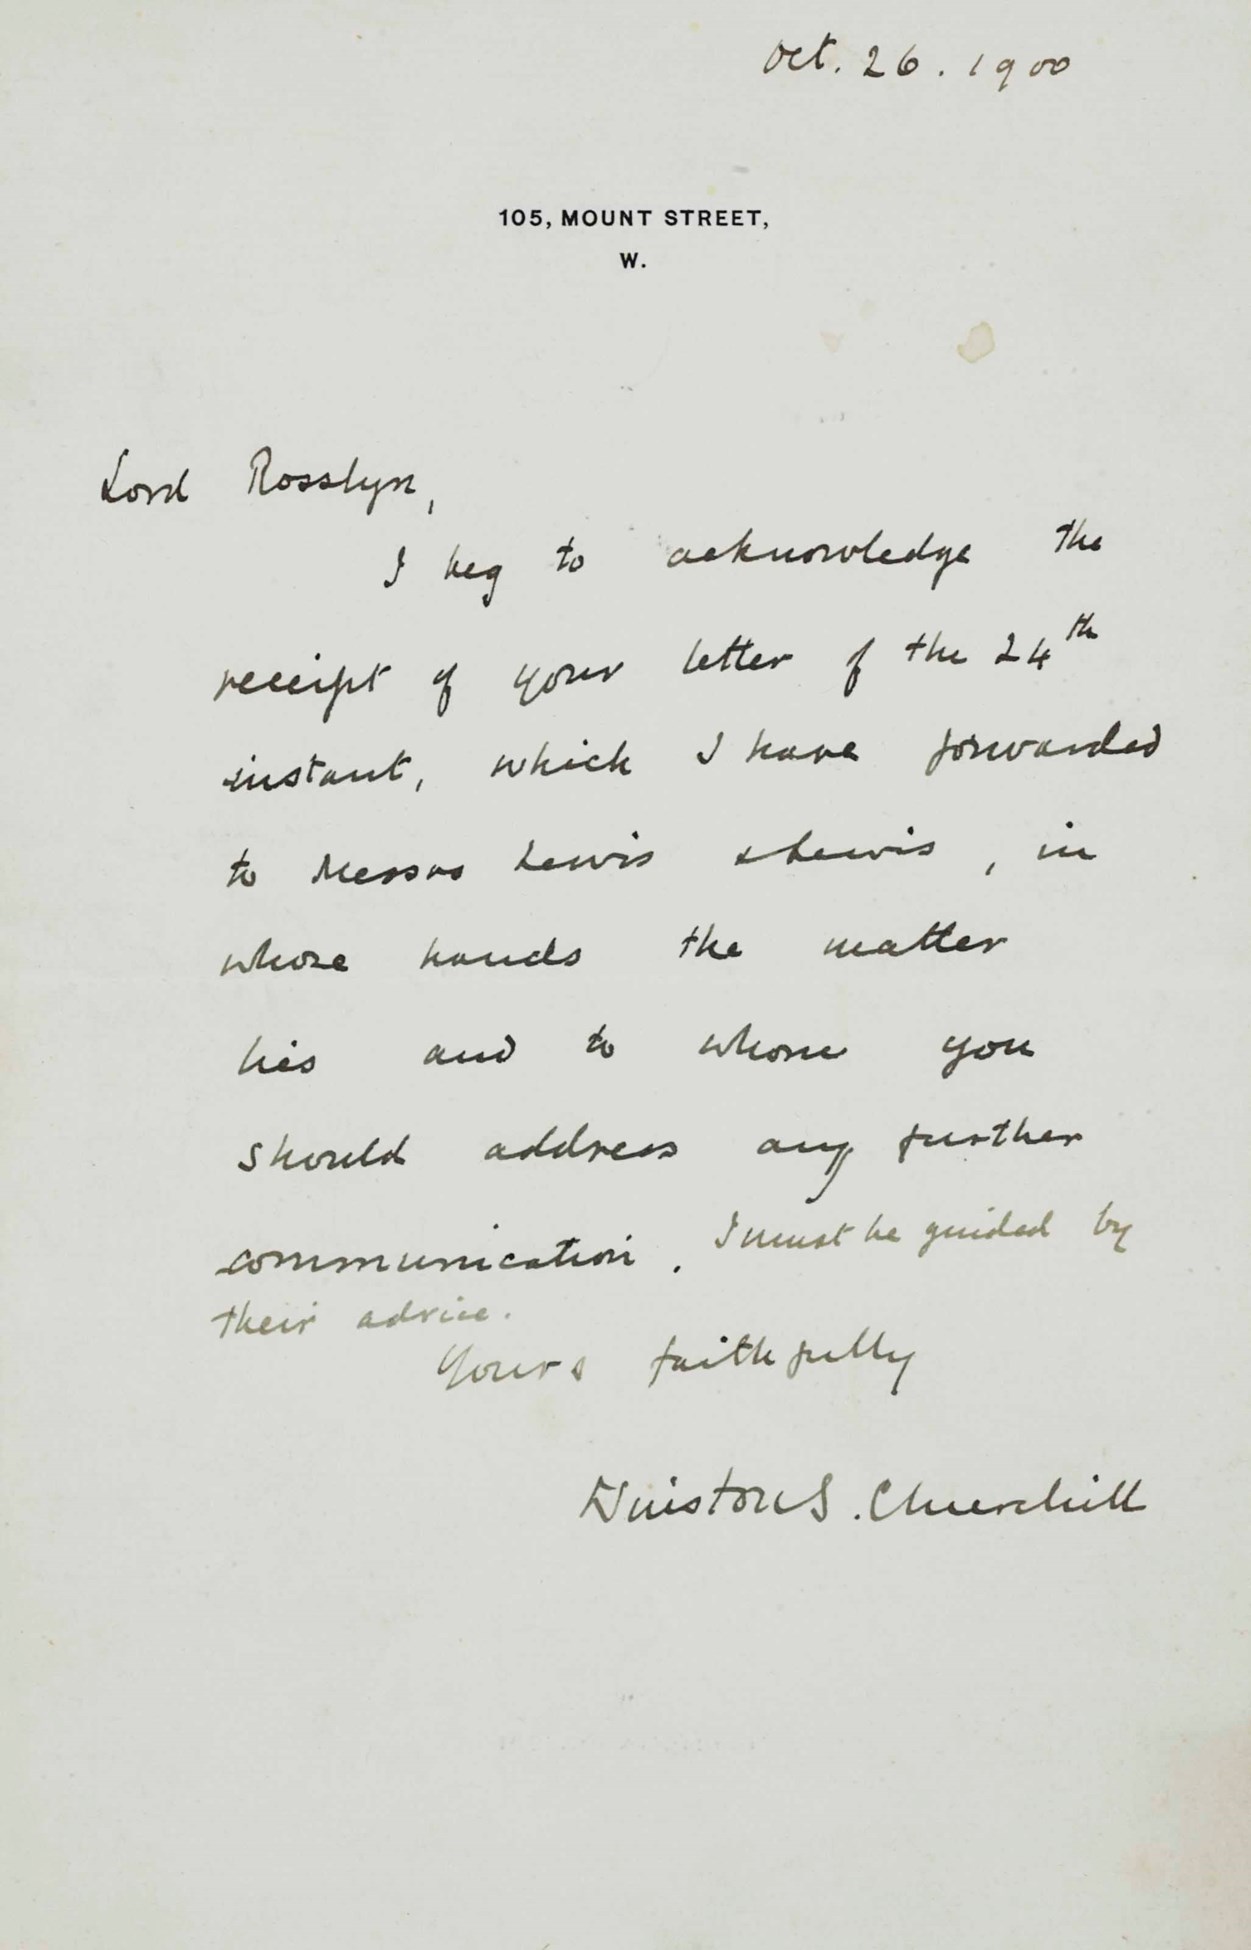 Oct. 26. 1900
105, MOUNT STREET,
W.
Lord Rosslyn,
I beg to acknowledge the
receipt of your letter of the 24th
instant, which I have forwarded
to Messrs Lewis & Lewis, in
whose hands the matter
lies and to whom you
should address any further
communication. I must be guided by
their advice.
Yours faithfully
Winston S. Churchill